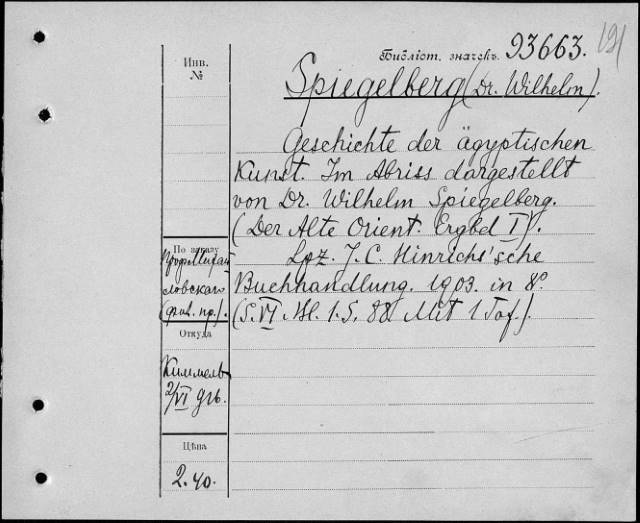 Библіот. значекъ 93663.
191
Инв.
№
Spiegelberg (Dr. Wilhelm).
Geschichte der ägyptischen
Kunst. Im Abriss dargestellt
von Dr. Wilhelm Spiegelberg.
(Der Alte Orient. Ergbd I).
Lpz. J. C. Hinrichs'sche
Buchhandlung. 1903. in 8°
(S. VI Bl. 1. S. 88. Mit 1 Taf.).
По заказу
Проф. Михай
ловскаго
Откуда
Киммель
2/VI
Цѣна
2.40.